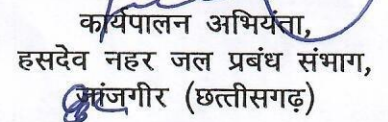 कार्यपालन अभियंता,
हसदेव नहर जल प्रबंध संभाग,
जांजगीर (छत्तीसगढ़)